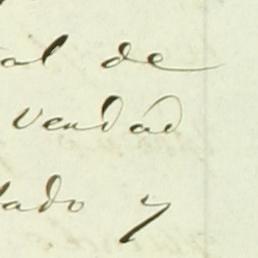 al de
Verdad
tado y